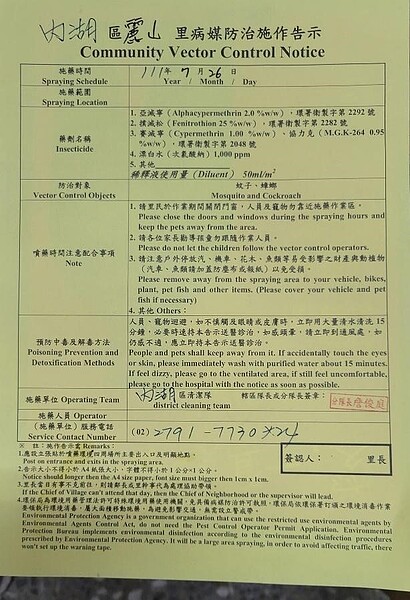 內湖 區 麗山 里病媒防治施作告示
Community Vector Control Notice
施藥時間
Spraying Schedule
111年 7月 26日
Year / Month / Day
施藥範圍
Spraying Location
藥劑名稱
Insecticide
1. 亞滅寧 (Alphacypermethrin 2.0 %w/w)，環署衛製字第 2292 號
2. 撲滅松 (Fenitrothion 25 %w/w)，環署衛製字第 2282 號
3. 賽滅寧 (Cypermethrin 1.00 %w/w)、協力克 (M.G.K-264 0.95
%w/w)，環署衛製字第 2048 號
4. 漂白水 (次氯酸鈉) 1,000 ppm
5. 其他
稀釋液使用量 (Diluent) 50ml/m²
防治對象
Vector Control Objects
蚊子、蟑螂
Mosquito and Cockroach
噴藥時間注意配合事項
Note
1. 請里民於作業期間關閉門窗，人員及寵物勿靠近施作業區。
Please close the doors and windows during the spraying hours and
keep the pets away from the area.
2. 請各位家長勸導孩童勿跟隨作業人員。
Please do not let the children follow the vector control operators.
3. 請注意戶外停放汽、機車、花木、魚類等易受影響之財產與動植物
(汽車、魚類請加蓋防塵布或報紙) 以免受損。
Please remove away from the spraying area to your vehicle, bikes,
plant, pet fish and other items. (Please cover your vehicle and pet
fish if necessary)
4. 其他 Others：
預防中毒及解毒方法
Poisoning Prevention and
Detoxification Methods
人員、寵物迴避，如不慎觸及眼睛或皮膚時，立即用大量清水清洗 15
分鐘，必要時速持本告示送醫診治，如感頭暈，請立即到通風處，如
仍感不適，應立即持本告示送醫診治。
People and pets shall keep away from it. If accidentally touch the eyes
or skin, please immediately wash with purified water about 15 minutes.
If feel dizzy, please go to the ventilated area, if still feel uncomfortable,
please go to the hospital with the notice as soon as possible.
施藥單位 Operating Team
內湖區清潔隊
district cleaning team
轄區隊長或分隊長簽章：
分隊長詹俊庭
施藥人員 Operator
(施藥單位) 服務電話
Service Contact Number
(02) 2791-7730×24
※ 註：施作告示當 Remarks：
1.應設立張貼於實際環境四周場所主要出入口及明顯處。
Post on entrance and exits in the spraying area.
2.告示大小不得小於 A4 紙張大小，字體不得小於 1 公分×1 公分。
Notice should longer then the A4 size paper, font size must bigger then 1cm x 1cm.
3.里長當日有事不克前往，則請鄰長或里幹事代為處理協助帶領。
If the Chief of Village can't attend that day, then the Chief of Neighborhood or the supervisor will lead.
簽認人：
里長
Environmental Protection Agency is a government organization that can use the restricted use environmental agents by
Environmental Agents Control Act, do not need the Pest Control Operator Permit Application. Environmental
Protection Bureau implements environmental disinfection according to the environmental disinfection procedures
prescribed by Environmental Protection Agency. It will be a large spraying area, in order to avoid affecting traffic, there
won't set up the warning tape.